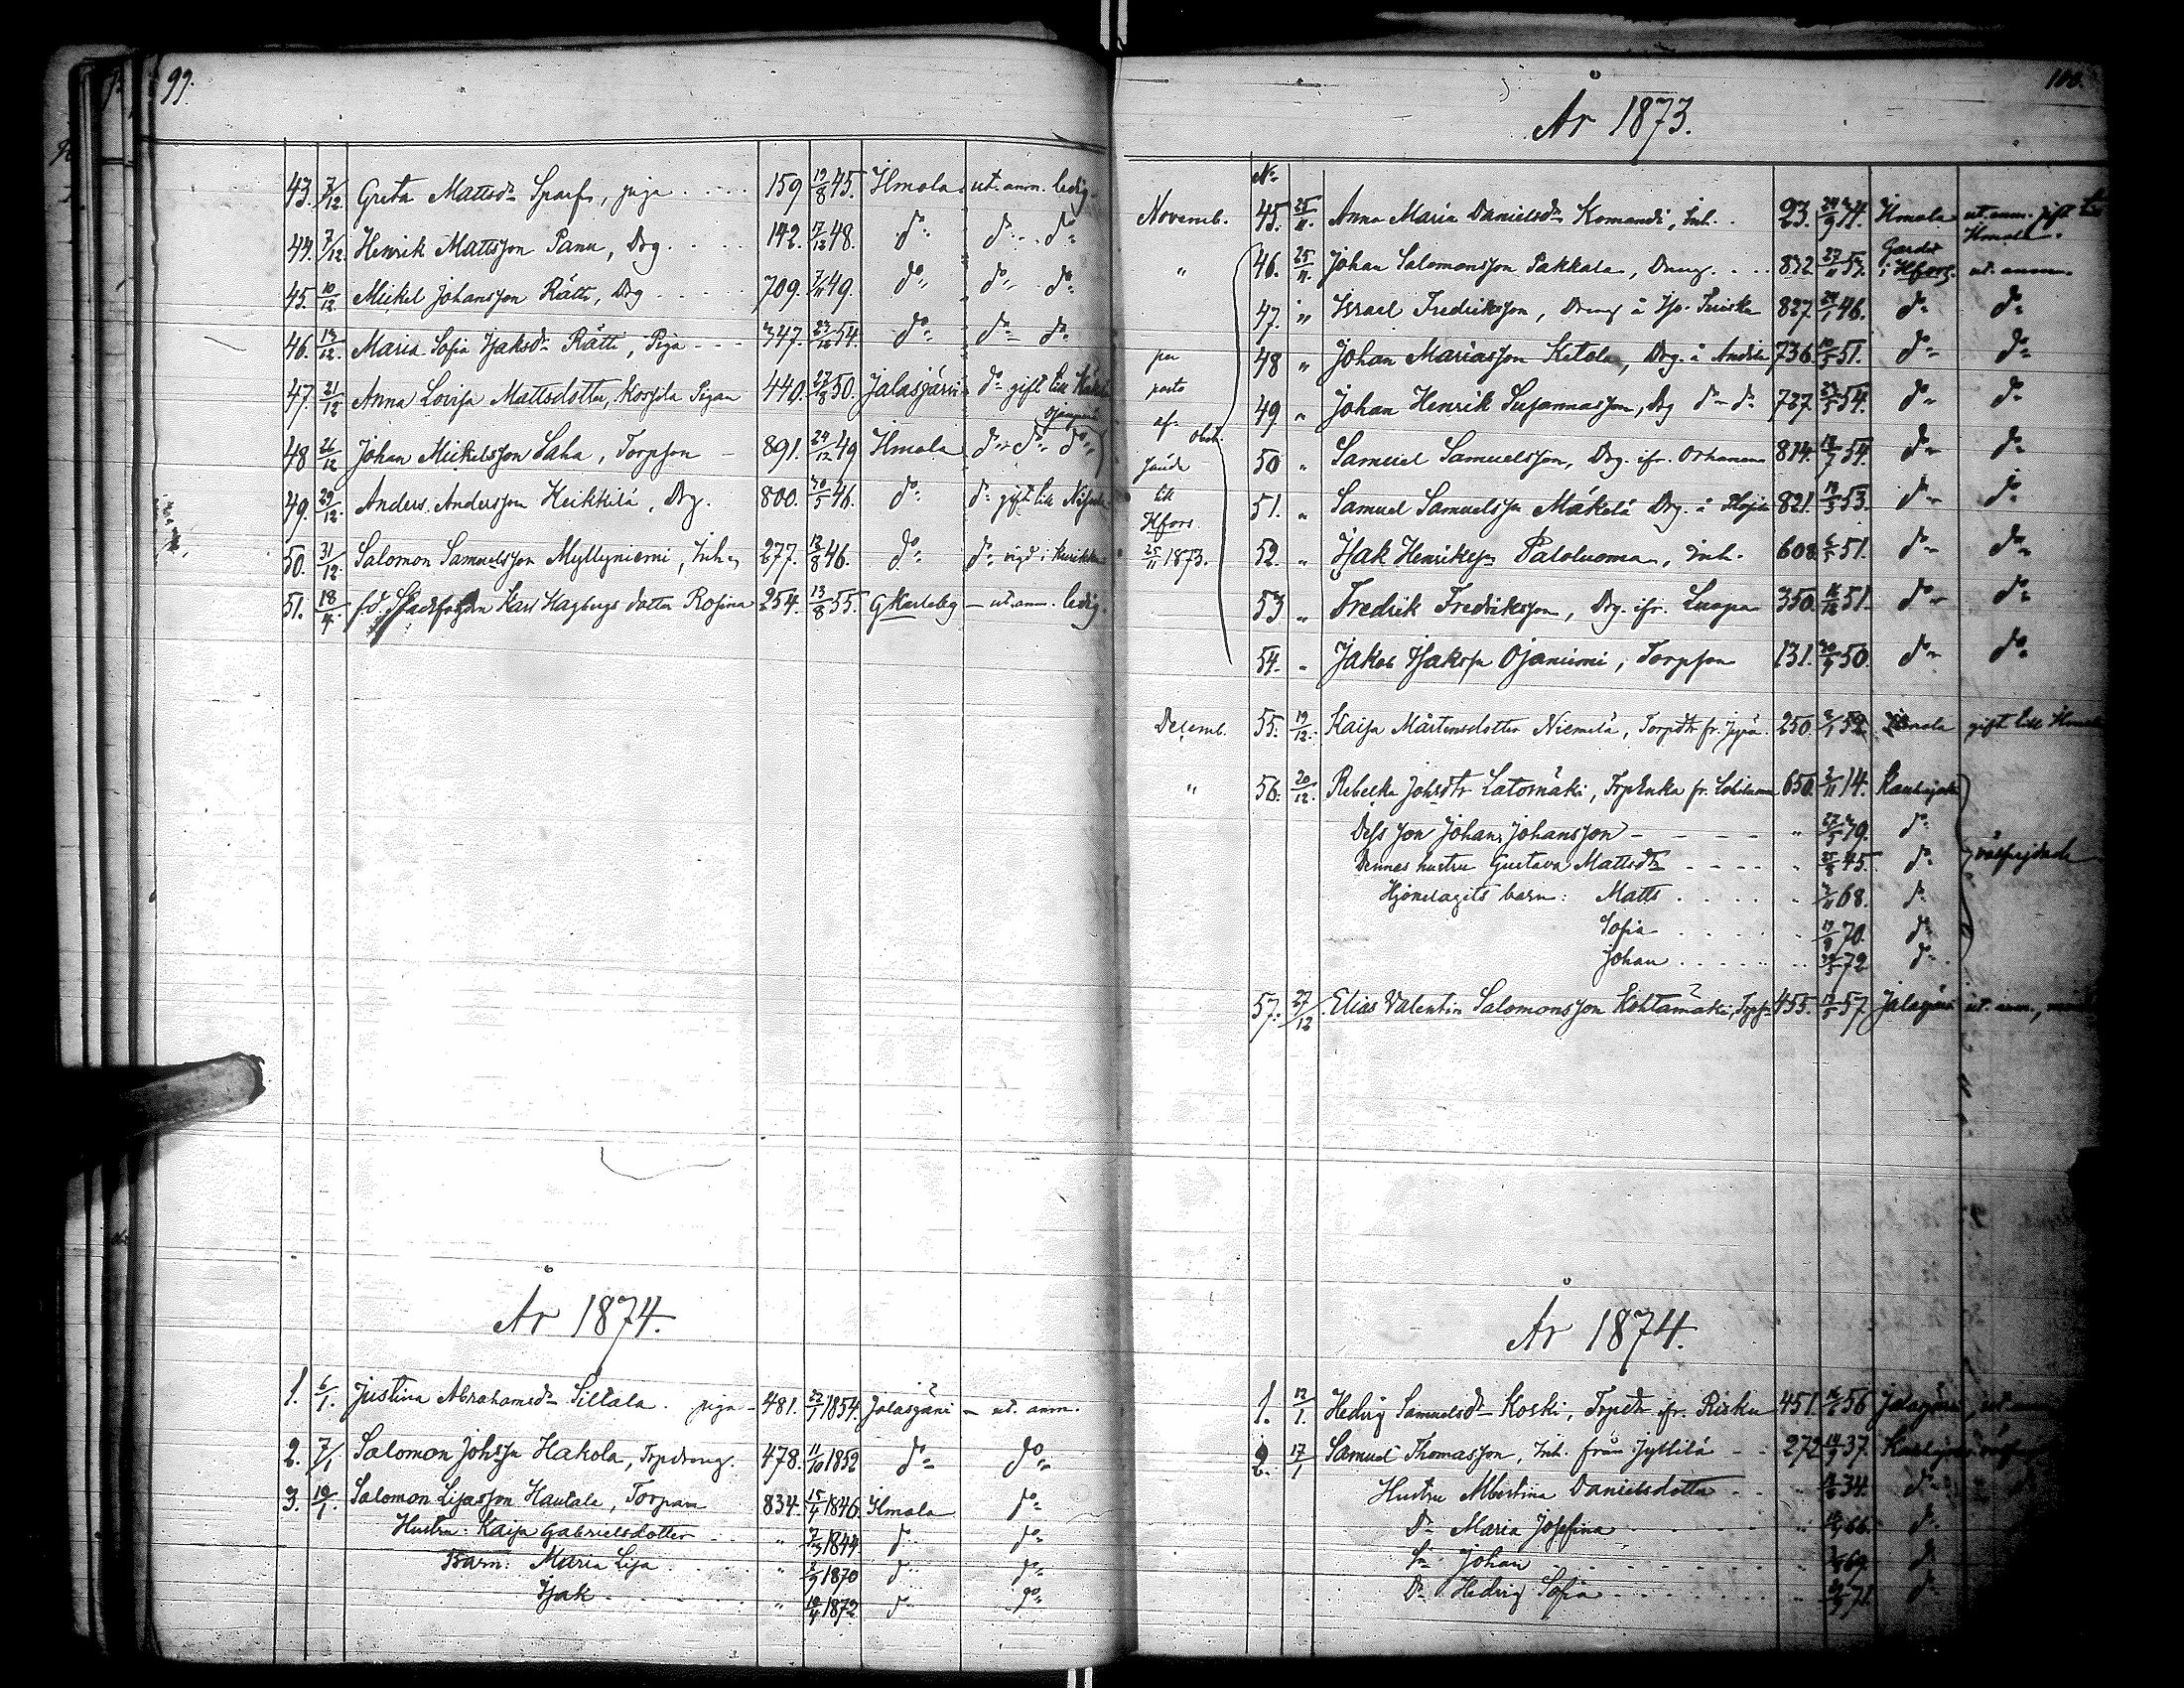 99.
43. 7/12. Greta Mattsdr Sparf, piga 159 19/8 45. Ilmola ut. anm. ledig
44. 7/12. Henrik Mattsson Panu, Drg. 142. 7/12 48. do do do
45. 10/12 Mickel Johansson Rätti, Drg 709. 7/11 49. do do do
46. 13/12. Maria Sofia Isaksdr Rätti, Piga 347. 54. do do do
47. 21/12 Anna Lovisa Mattsdotter, Koskela Pigan 440. 27/8 50. Jalasjärvi do gift till
48 26/12 Johan Mickelsson Saha, Torpson 891. 24/12 49 Ilmola do do do
49. 29/12. Anders Andersson Heikkilä, Drg. 800. 30/5 46. do do gift till
50. 31/12 Salomon Samuelsson Myllyniemi, Inh. 277. 12/8 46. do do vigd i Kurikka
51. 18/4. fd. Karl Hagbergs dotter Rosina 254. 13/8 55. GKarleby ut. anm. ledig.
År 1874.
1. 6/1. Justina Abrahamsdr Siltala. piga 481. 22/1 1854. Jalasjärvi ut. anm.
2. 7/1 Salomon Johsson Hakola, Torpdreng. 478. 11/10 1852 do do
3. 19/1. Salomon Lisasson Hautala, Torpare 834. 15/4 1846. Ilmola do
Hustru: Kaisa Gabrielsdotter " 7/3 1844 do do
Barn: Maria Lisa " 2/9 1870 do do
Isak " 19/4 1872 do do
100.
År 1873.
No
Novemb. 45. 25/11. Anna Maria Danielsdr Komandi, Inh. 23. Ilmola ut. anm. gift
Ilmola.
" 46. 25/11. Johan Salomonsson Pakkala, Dreng. 832 27/11 53. Gardet i Hfors. ut. anm.
47. " Israel Fredriksson, Dreng å 827. 46. do do
per 48 " Johan Mariasson Ketola, Drg. å Anttila 736. 51. do do
posto 49. " Johan Henrik Susannasson, Drg do do 727. 54. do do
af- 50 " Samuel Samuelsson, Drg. ifr. Orhanen 814. 54. do do
sände
till 51. " Samuel Samuelsson Mäkelä Drg. å 821. 53. do do
Hfors.
25/11 1873. 52. " Isak Henriksson Paloluoma, Inh. 608 51. do do
53 " Fredrik Fredriksson, Drg. ifr. Luopa 350. 51. do do
54. " Jakob Isaksson Ojaniemi, Torpson 131. 50. do do
Decemb. 55. 19/12. Kaisa Mårtensdotter Niemelä, Torpdtr fr. 250. 52. Ilmola gift till
" 56. 20/12. Rebecka Johsdtr Latomäki, TorpEnka fr. 650. 2/11 14. Kauhajoki
Dess son Johan Johansson " 27/5 49. do
Dennes hustru Gustava Mattsdtr " 25/8 45. do
Hjonelagets barn: Matts " 2/11 68. do
Sofia 70. do
Johan 72. do
57. 27/12. Elias Valentin Salomonsson Kohtamäki, Torps 455. 57. Jalasjärvi ut. anm.,
År 1874.
1. 12/1. Hedvig Samuelsdr Koski, Torpdtr ifr. Risku 451. 56 Jalasjärvi, ut. anm
2. 17/1 Samuel Thomasson, Inh. från Jyllilä 272 37. Kauhajoki
Hustru Albertina Danielsdotter " 34. do
Dr Maria Josefina " 66. do
Sn Johan 69. do
Dr Hedvig Sofia 71. do